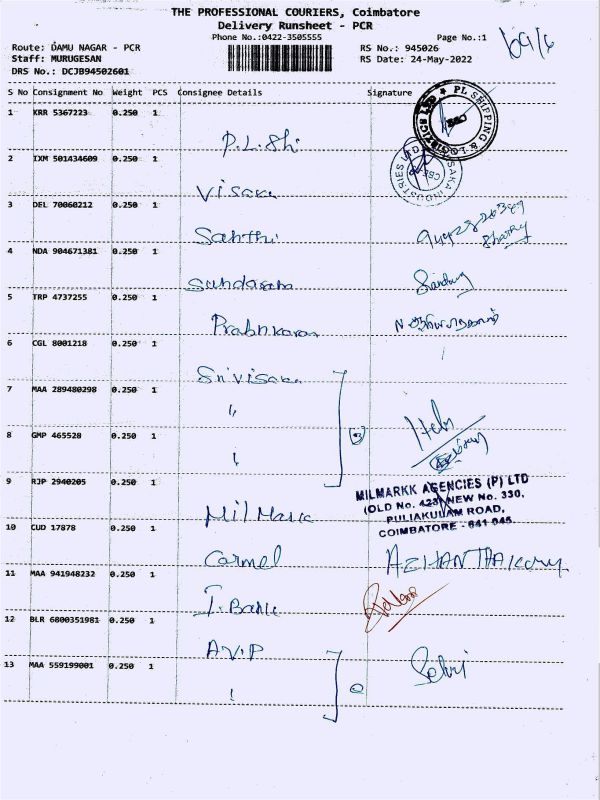 THE PROFESSIONAL COURIERS, Coimbatore
Delivery Runsheet - PCR
Phone No.:0422-3505555
Page No.:1
Route: DAMU NAGAR - PCR
RS No.: 945026
Staff: MURUGESAN
RS Date: 24-May-2022
DRS No.: DCJB94502601
S No Consignment No Weight PCS Consignee Details Signature
1 KRR 5367223 0.250 1
P.L.Shi
PL SHIPPING & LOGISTICS LTD
2 IXM 501434609 0.250 1
Visaka
3 DEL 70060212 0.250 1
Santhi
4 NDA 904671381 0.250 1
Sundaram
5 TRP 4737255 0.250 1
Prabhkaran
6 CGL 8001218 0.250 1
Srivisaka
7 MAA 289480298 0.250 1
"
8 GMP 465528 0.250 1
"
9 RJP 2940205 0.250 1
Mil Mark
MILMARKK AGENCIES (P) LTD
(OLD No. 423) NEW No. 330,
PULIAKULAM ROAD,
COIMBATORE - 641 045.
10 CUD 17878 0.250 1
Carmel
11 MAA 941948232 0.250 1
I.Bank
12 BLR 6800351981 0.250 1
A.V.P
Selvi
13 MAA 559199001 0.250 1
"